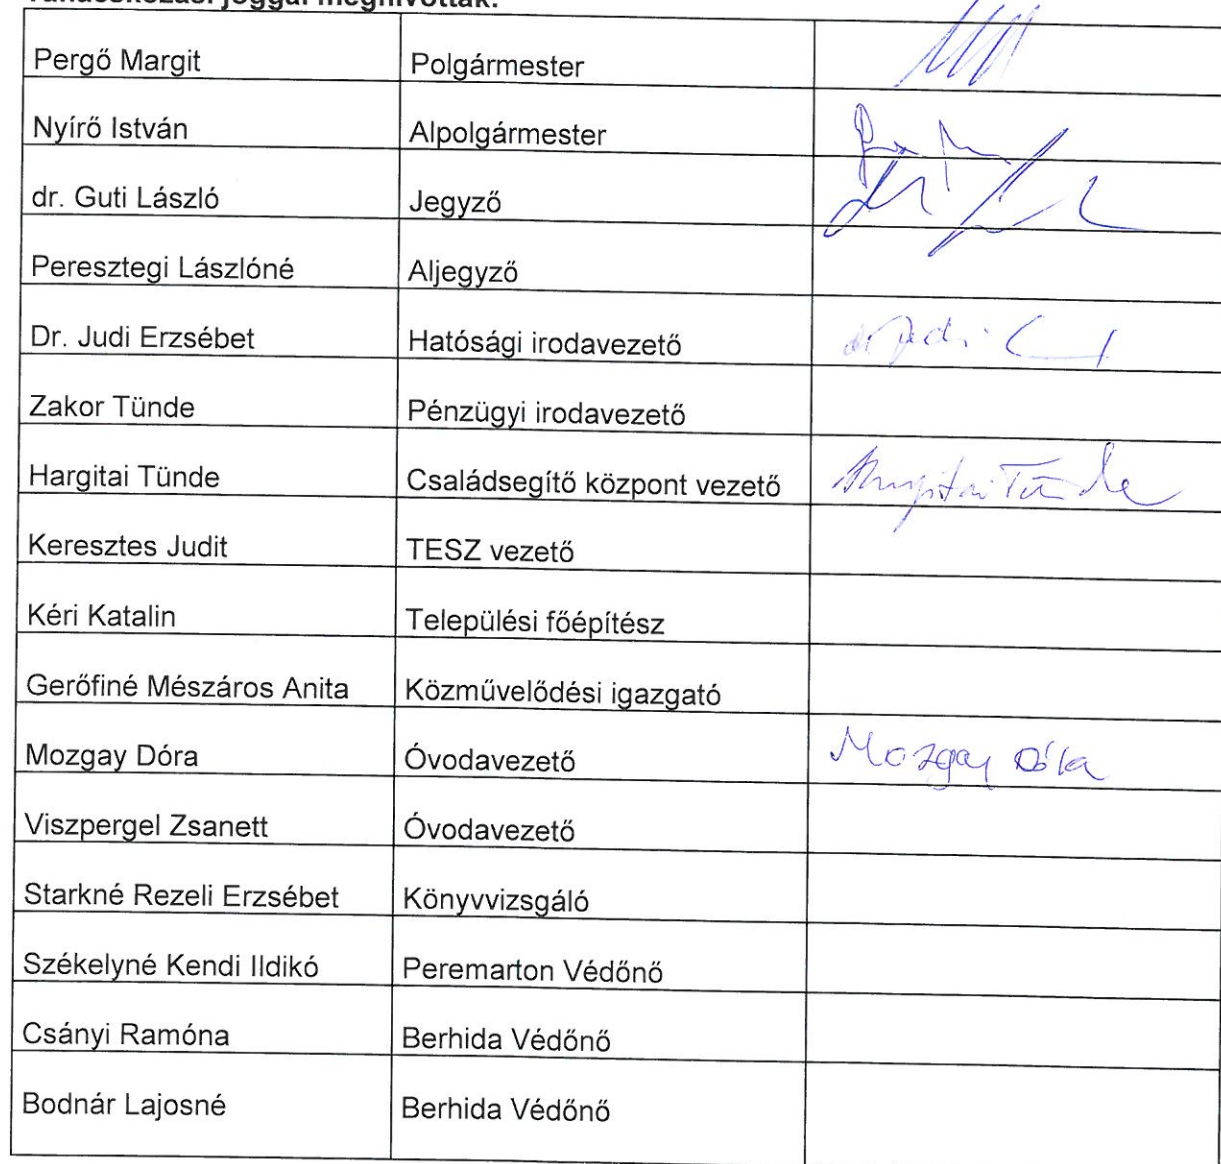 Tanácskozási joggal meghívottak:
Pergő Margit Polgármester
Nyírő István Alpolgármester
dr. Guti László Jegyző
Peresztegi Lászlóné Aljegyző
Dr. Judi Erzsébet Hatósági irodavezető dr Judi
Zakor Tünde Pénzügyi irodavezető
Hargitai Tünde Családsegítő központ vezető Hargitai Tünde
Keresztes Judit TESZ vezető
Kéri Katalin Települési főépítész
Gerőfiné Mészáros Anita Közművelődési igazgató
Mozgay Dóra Óvodavezető Mozgay Dóra
Viszpergel Zsanett Óvodavezető
Starkné Rezeli Erzsébet Könyvvizsgáló
Székelyné Kendi Ildikó Peremarton Védőnő
Csányi Ramóna Berhida Védőnő
Bodnár Lajosné Berhida Védőnő